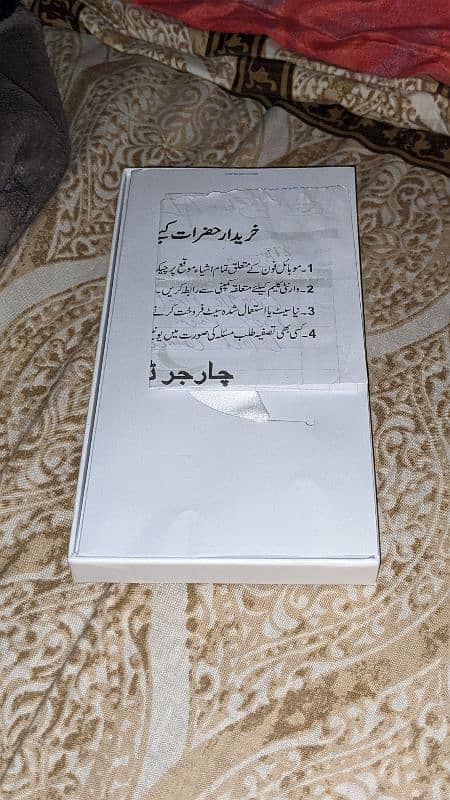 خریدار حضرات کیـ
1۔موبائل فون کے متعلق تمام اشیاء موقع پر چیک
2۔وارنٹی کلیم کیلئے متعلقہ کمپنی سے رابطہ کریں۔
3۔نیا سیٹ یا استعمال شدہ سیٹ فروخت کرنے
4۔کسی بھی تصفیہ طلب مسئلہ کی صورت میں یونیـ
چارجر